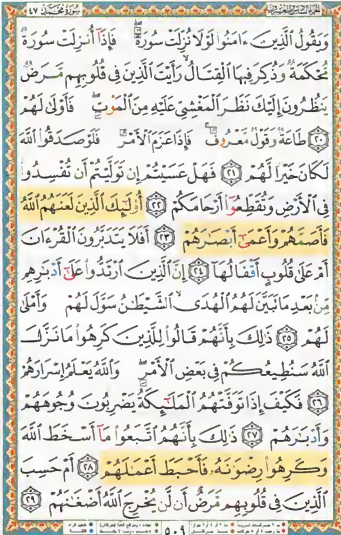 سُورَةُ مُحَمَّد ٤٧
وَيَقُولُ ٱلَّذِينَ ءَامَنُوا۟ لَوْلَا نُزِّلَتْ سُورَةٌۖ فَإِذَآ أُنزِلَتْ سُورَةٌ
مُّحْكَمَةٌ وَذُكِرَ فِيهَا ٱلْقِتَالُ رَأَيْتَ ٱلَّذِينَ فِى قُلُوبِهِم مَّرَضٌ
يَنظُرُونَ إِلَيْكَ نَظَرَ ٱلْمَغْشِىِّ عَلَيْهِ مِنَ ٱلْمَوْتِۖ فَأَوْلَىٰ لَهُمْ
٢٠ طَاعَةٌ وَقَوْلٌ مَّعْرُوفٌۚ فَإِذَا عَزَمَ ٱلْأَمْرُ فَلَوْ صَدَقُوا۟ ٱللَّهَ
لَكَانَ خَيْرًا لَّهُمْ ٢١ فَهَلْ عَسَيْتُمْ إِن تَوَلَّيْتُمْ أَن تُفْسِدُوا۟
فِى ٱلْأَرْضِ وَتُقَطِّعُوٓا۟ أَرْحَامَكُمْ ٢٢ أُو۟لَٰٓئِكَ ٱلَّذِينَ لَعَنَهُمُ ٱللَّهُ
فَأَصَمَّهُمْ وَأَعْمَىٰٓ أَبْصَٰرَهُمْ ٢٣ أَفَلَا يَتَدَبَّرُونَ ٱلْقُرْءَانَ
أَمْ عَلَىٰ قُلُوبٍ أَقْفَالُهَآ ٢٤ إِنَّ ٱلَّذِينَ ٱرْتَدُّوا۟ عَلَىٰٓ أَدْبَٰرِهِم
مِّنۢ بَعْدِ مَا تَبَيَّنَ لَهُمُ ٱلْهُدَىۙ ٱلشَّيْطَٰنُ سَوَّلَ لَهُمْ وَأَمْلَىٰ
لَهُمْ ٢٥ ذَٰلِكَ بِأَنَّهُمْ قَالُوا۟ لِلَّذِينَ كَرِهُوا۟ مَا نَزَّلَ
ٱللَّهُ سَنُطِيعُكُمْ فِى بَعْضِ ٱلْأَمْرِۖ وَٱللَّهُ يَعْلَمُ إِسْرَارَهُمْ
٢٦ فَكَيْفَ إِذَا تَوَفَّتْهُمُ ٱلْمَلَٰٓئِكَةُ يَضْرِبُونَ وُجُوهَهُمْ
وَأَدْبَٰرَهُمْ ٢٧ ذَٰلِكَ بِأَنَّهُمُ ٱتَّبَعُوا۟ مَآ أَسْخَطَ ٱللَّهَ
وَكَرِهُوا۟ رِضْوَٰنَهُۥ فَأَحْبَطَ أَعْمَٰلَهُمْ ٢٨ أَمْ حَسِبَ
ٱلَّذِينَ فِى قُلُوبِهِم مَّرَضٌ أَن لَّن يُخْرِجَ ٱللَّهُ أَضْغَٰنَهُمْ ٢٩
٥٠٩